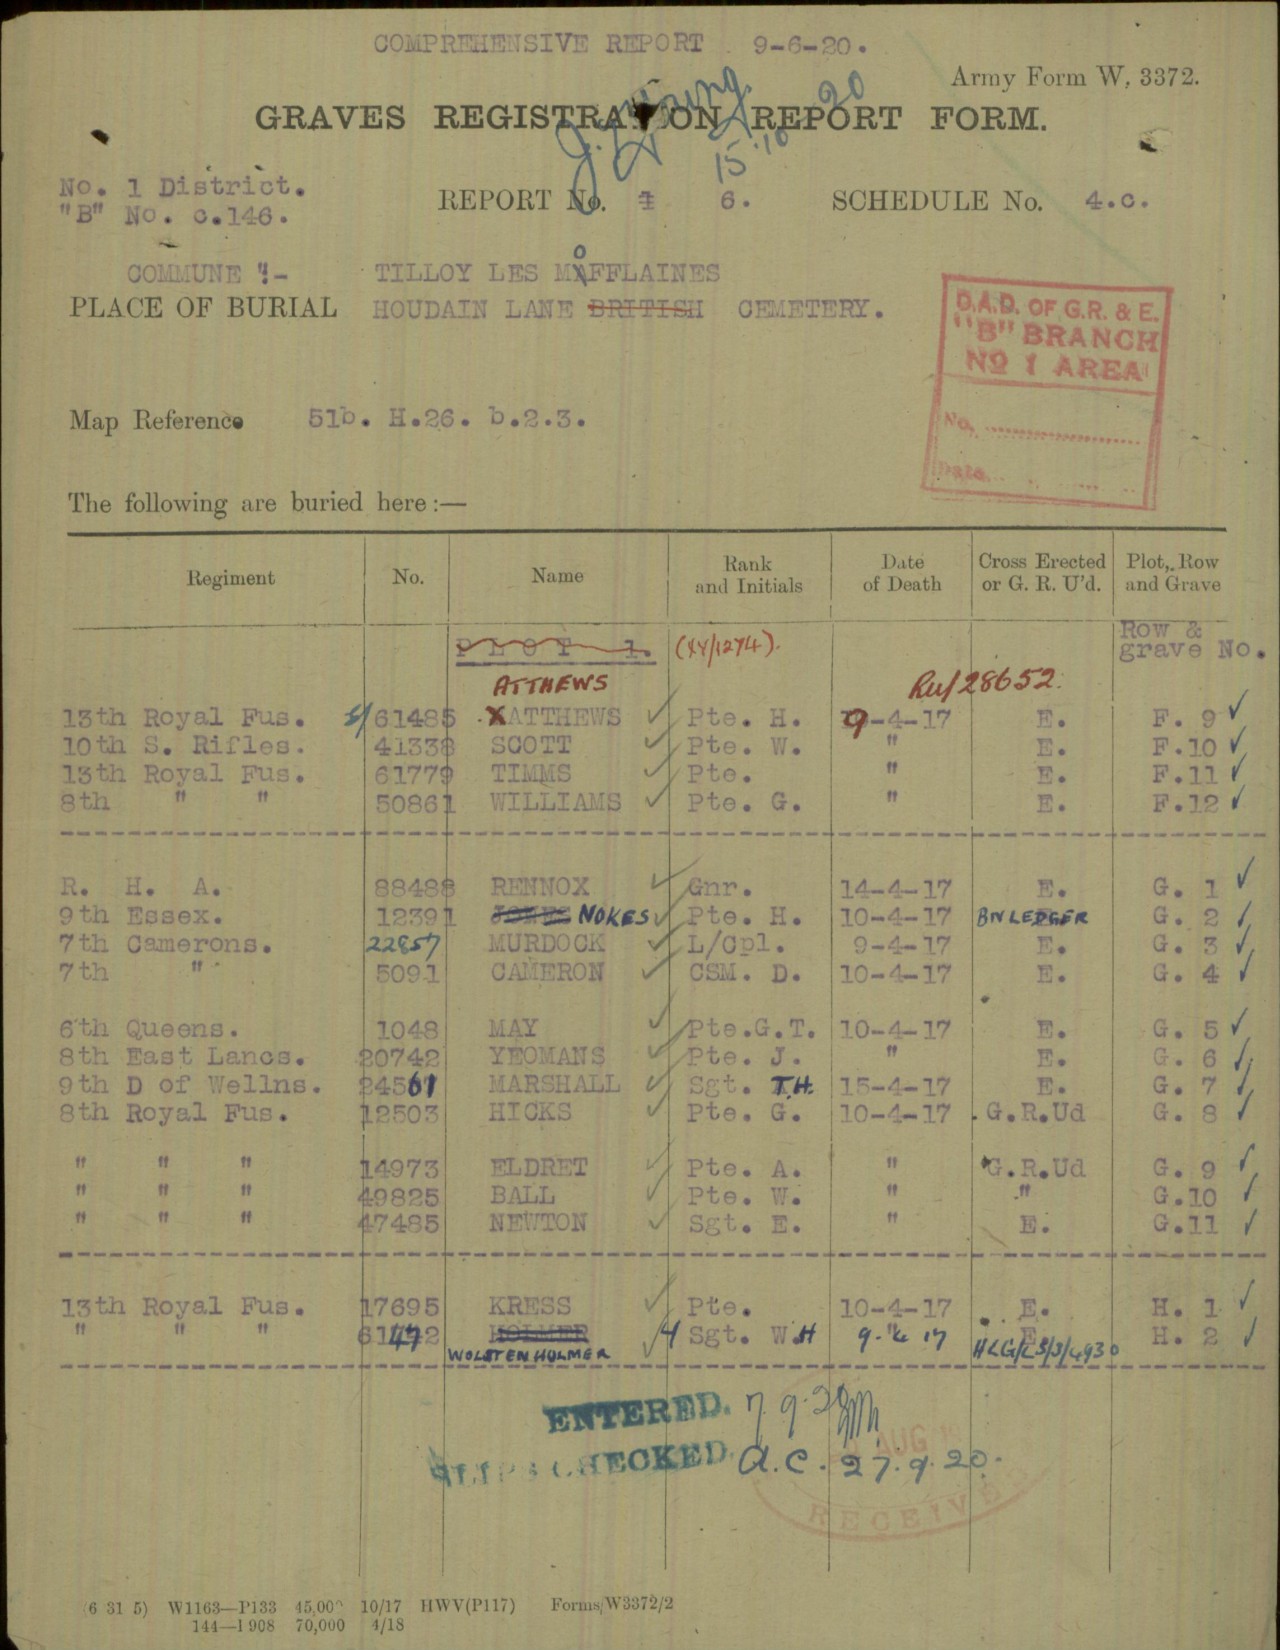 COMPREHENSIVE REPORT 9-6-20.
Army Form W, 3372.
GRAVES REGISTRATION REPORT FORM.
20
15.10
No. 1 District.
"B" No. c.146.
REPORT No. 1 6. SCHEDULE No. 4.c.
COMMUNE :- TILLOY LES MOFFLAINES
PLACE OF BURIAL HOUDAIN LANE BRITISH CEMETERY.
D.A.D. OF G.R. & E.
"B" BRANCH
No 1 AREA
No.
Date
Map Reference 51b. H.26. b.2.3.
The following are buried here :—
Regiment No. Name Rank and Initials Date of Death Cross Erected or G. R. U'd. Plot, Row and Grave
PLOT 1. (XY/1274). Row & grave No.
ATTHEWS Ru/28652.
13th Royal Fus. S/61485 XATTHEWS ✓ Pte. H. 9-4-17 E. F. 9 ✓
10th S. Rifles. 41338 SCOTT ✓ Pte. W. " E. F.10 ✓
13th Royal Fus. 61779 TIMMS ✓ Pte. " E. F.11 ✓
8th " " 50861 WILLIAMS ✓ Pte. G. " E. F.12 ✓
R. H. A. 88488 RENNOX ✓ Gnr. 14-4-17 E. G. 1 ✓
9th Essex. 12391 JONES NOKES ✓ Pte. H. 10-4-17 BN LEDGER G. 2 ✓
7th Camerons. 22857 MURDOCK ✓ L/Cpl. 9-4-17 E. G. 3 ✓
7th " 5091 CAMERON ✓ CSM. D. 10-4-17 E. G. 4 ✓
6th Queens. 1048 MAY ✓ Pte.G.T. 10-4-17 E. G. 5 ✓
8th East Lancs. 20742 YEOMANS ✓ Pte. J. " E. G. 6 ✓
9th D of Wellns. 24561 MARSHALL ✓ Sgt. T.H. 15-4-17 E. G. 7 ✓
8th Royal Fus. 12503 HICKS ✓ Pte. G. 10-4-17 G.R.Ud G. 8 ✓
" " " 14973 ELDRET ✓ Pte. A. " G.R.Ud G. 9 ✓
" " " 49825 BALL ✓ Pte. W. " " G.10 ✓
" " " 47485 NEWTON ✓ Sgt. E. " E. G.11 ✓
13th Royal Fus. 17695 KRESS ✓ Pte. 10-4-17 E. H. 1 ✓
" " " 61472 HOLMER ✓ Sgt. W.H 9.4.17 E. H. 2 ✓
WOLSTENHOLMER
ENTERED. 7.9.20
SLIPS CHECKED. a.c. 27.9.20.
AUG
RECEIVED
(6 31 5) W1163—P133 45,000 10/17 HWV(P117) Forms/W3372/2
144—1908 70,000 4/18